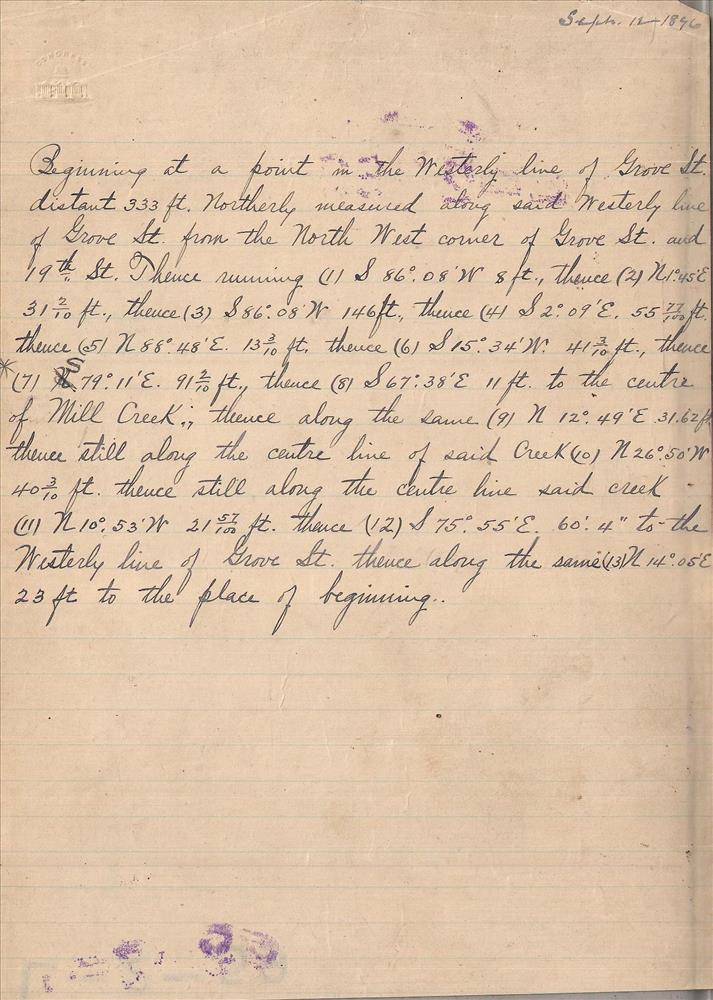 Septr. 12-1896
CONGRESS
Beginning at a point in the Westerly line of Grove St.
distant 333 ft. Northerly measured along said Westerly line
of Grove St. from the North West corner of Grove St. and
19th St. Thence running (1) S 86°.08'W 8 ft., thence (2) N.1°.45'E
31 2/10 ft., thence (3) S86°.08'W 146ft., thence (4) S 2°.09'E. 55 77/100 ft.
thence (5) N 88°.48'E. 13 3/10 ft. thence (6) S 15°.34'W. 41 3/10 ft., thence
* (7) S 79°.11'E. 91 2/10 ft., thence (8) S 67°.38'E 11 ft. to the centre
of Mill Creek., thence along the same (9) N 12°.49'E 31.62ft
thence still along the centre line of said Creek (10) N 26°.50'W
40 3/10 ft. thence still along the centre line said creek
(11) N 10°.53'W 21 57/100 ft. thence (12) S 75°.55'E. 60'.4" to the
Westerly line of Grove St. thence along the same (13) N 14°.05'E
23 ft to the place of beginning..